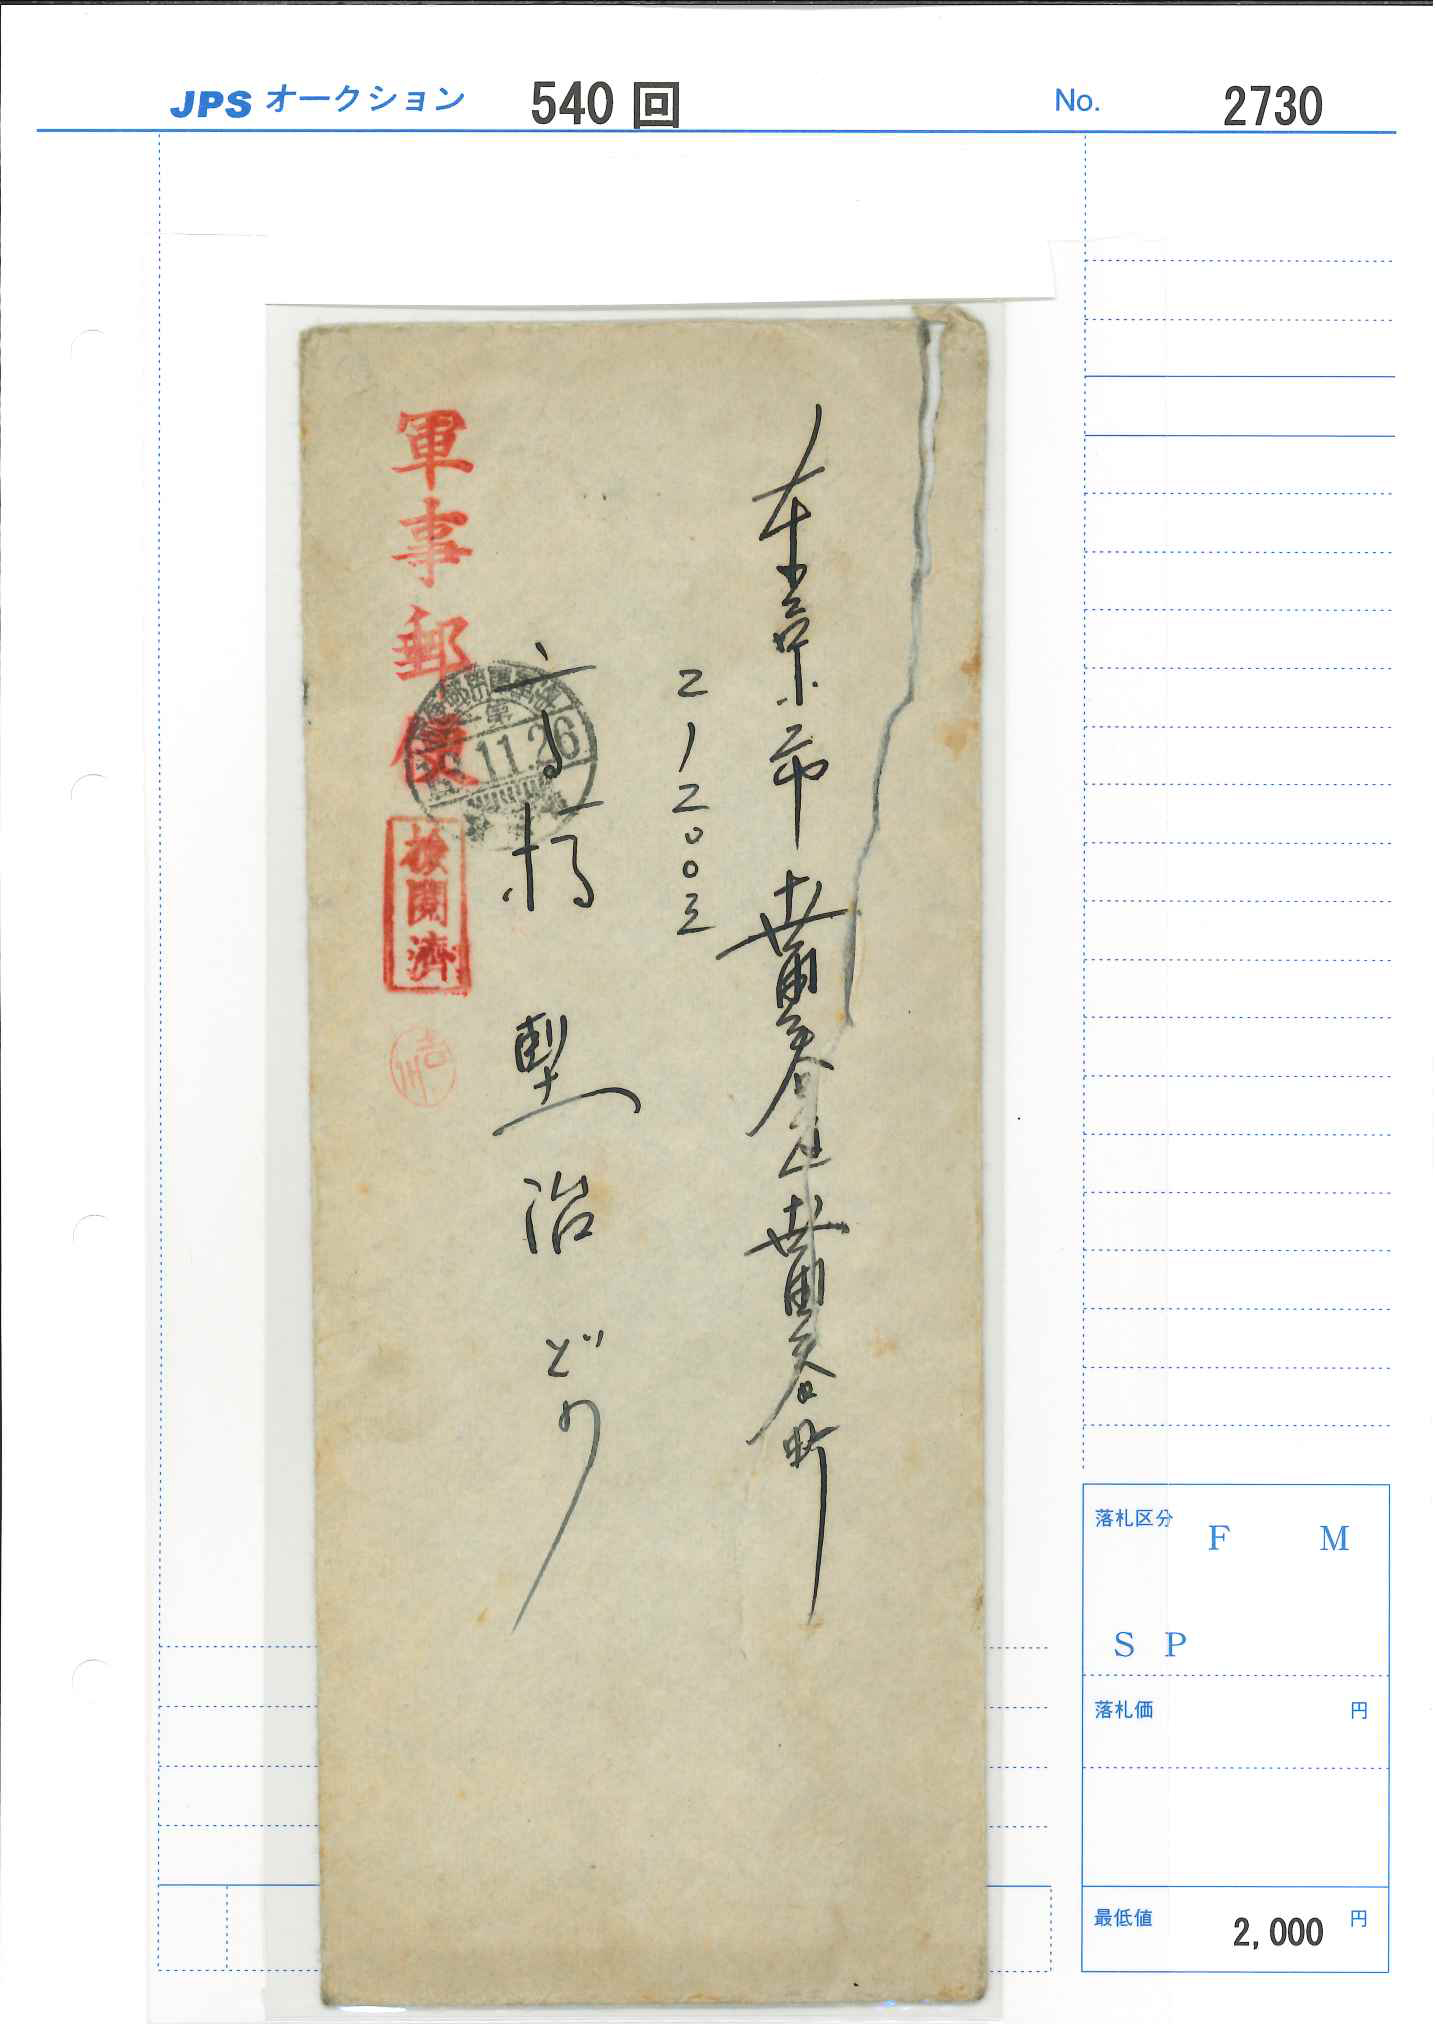 JPS オークション 540 回 No. 2730
東京市世田谷区世田谷町
2ノ2003
高橋 堅治どの
軍事郵便
11.26
検閲濟
吉川
落札区分 F M
S P
落札価 円
最低値 2,000 円